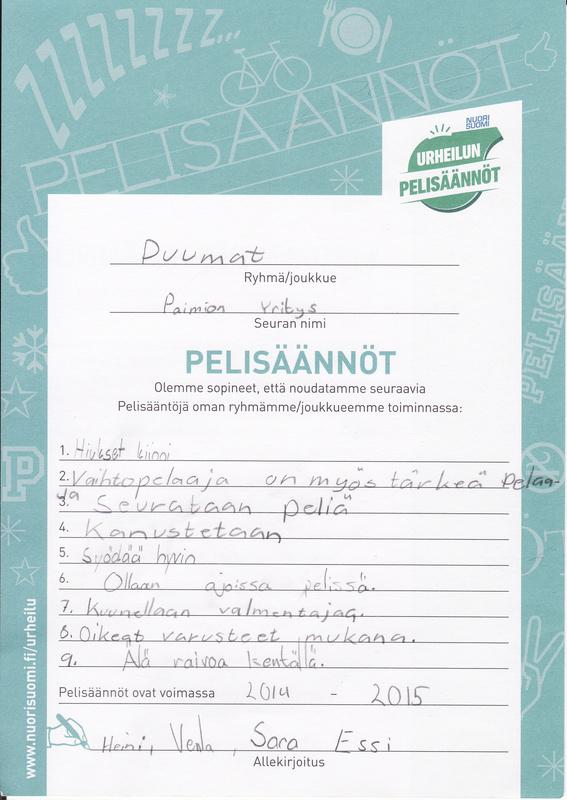 ZZZZZZZZ...
PELISÄÄNNÖT
NUORI
SUOMI
URHEILUN
PELISÄÄNNÖT
Puumat
Ryhmä/joukkue
Paimion Yritys
Seuran nimi
PELISÄÄNNÖT
Olemme sopineet, että noudatamme seuraavia
Pelisääntöjä oman ryhmämme/joukkueemme toiminnassa:
1. Hiukset kiinni
2. Vaihtopelaaja on myös tärkeä pelaa-
ja
3. Seurataan peliä
4. Kanustetaan
5. Syödää hyvin
6. Ollaan ajoissa pelissä.
7. Kuunellaan valmentajaa.
8. Oikeat varusteet mukana.
9. Älä raivoa kentällä.
Pelisäännöt ovat voimassa 2014 - 2015
Heini, Venla, Sara Essi
Allekirjoitus
www.nuorisuomi.fi/urheilu
P